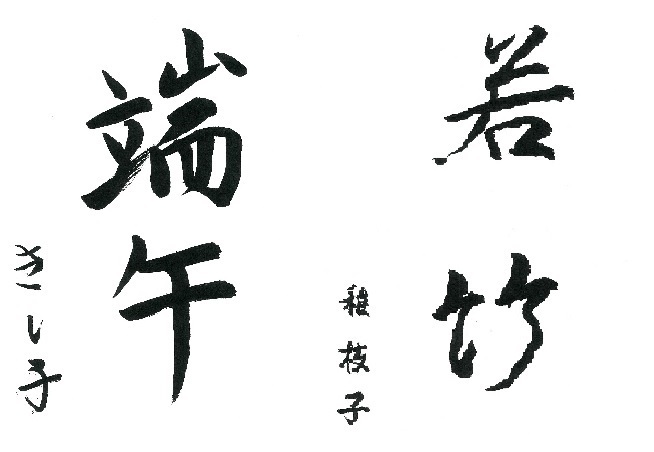 若竹
稚枝子
端午
きし子